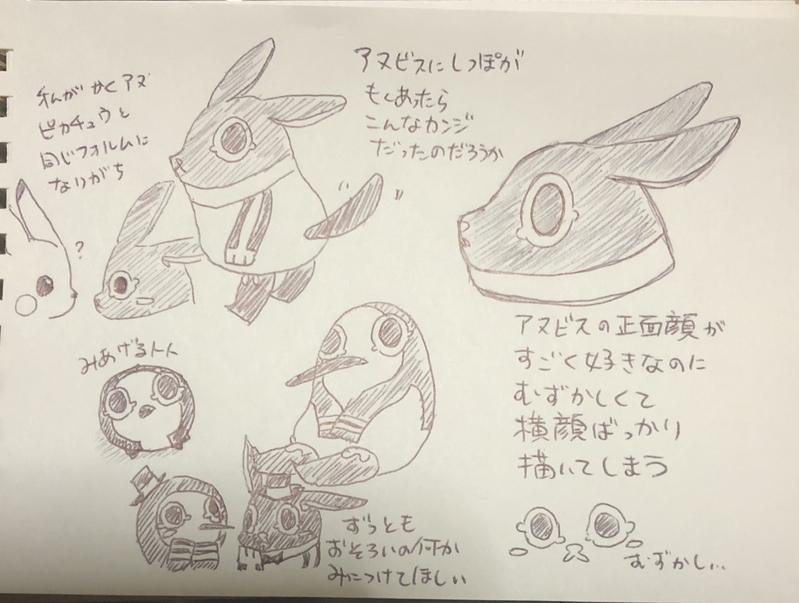 私がかくアヌ
ピカチュウと
同じフォルムに
なりがち
?
アヌビスにしっぽが
もしあったら
こんなカンジ
だったのだろうか
みあげるトト
ずっとも
おそろいの何か
みにつけてほしい
アヌビスの正面顔が
すごく好きなのに
むずかしくて
横顔ばっかり
描いてしまう
むずかし...